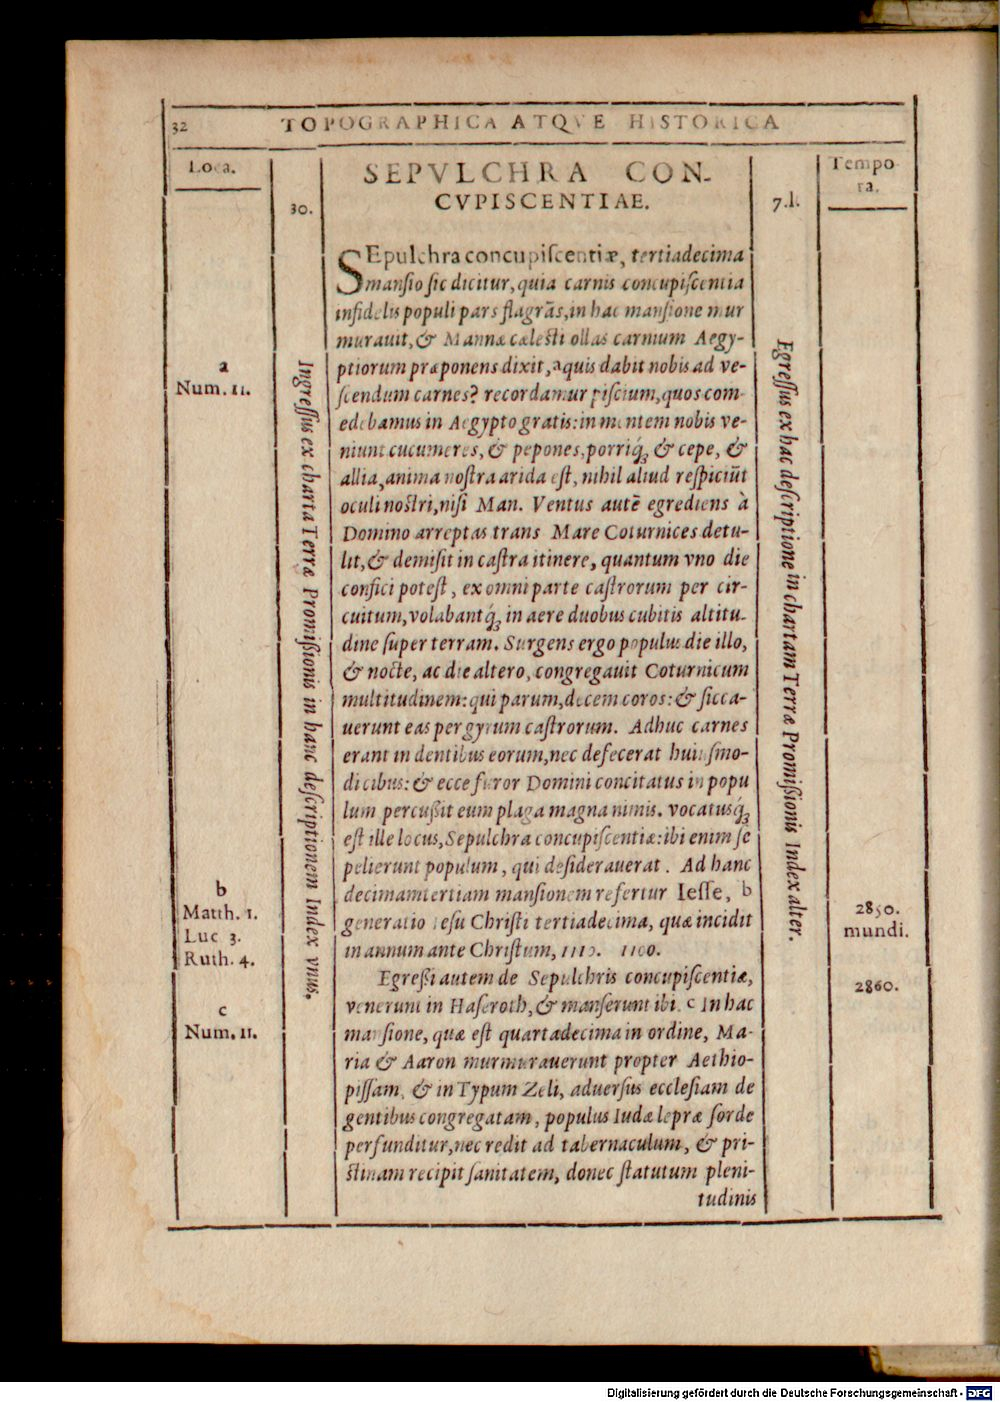 32 TOPOGRAPHICA ATQVE HISTORICA
Loca.
30.
SEPVLCHRA CON-
CVPISCENTIAE.
7.l.
Tempo
ra.
SEpulchra concupiſcentiæ, tertiadecima
manſio ſic dicitur, quia carnis concupiſcentia
infidelis populi pars flagrãs, in hac manſione mur
murauit, & Mannæ cælesti ollas carnium Aegy-
ptiorum præponens dixit, a quis dabit nobis ad ve-
ſcendum carnes? recordamur piſcium, quos com-
edebamus in Aegypto gratis: in mentem nobis ve-
niunt cucumeres, & pepones, porriq́ꝫ & cepe, &
allia, anima nostra arida est, nihil aliud reſpiciũt
oculi nostri, niſi Man. Ventus autẽ egrediens à
Domino arreptas trans Mare Coturnices detu-
lit, & demiſit in caſtra itinere, quantum vno die
confici poteſt, ex omni parte caſtrorum per cir-
cuitum, volabantq́ꝫ in aere duobus cubitis altitu-
dine ſuper terram. Surgens ergo populus die illo,
& nocte, ac die altero, congregauit Coturnicum
multitudinem: qui parum, decem coros: & ſicca-
uerunt eas per gyrum caſtrorum. Adhuc carnes
erant in dentibus eorum, nec defecerat huiuſmo-
di cibus: & ecce furor Domini concitatus in popu
lum percußit eum plaga magna nimis. vocatusq́ꝫ
eſt ille locus, Sepulchra concupiſcentiæ: ibi enim ſe
pelierunt populum, qui deſiderauerat. Ad hanc
decimamtertiam manſionem refertur Ieſſe, b
generatio Ieſu Chriſti tertiadecima, quæ incidit
in annum ante Chriſtum, 1110. 1100.
Egreßi autem de Sepulchris concupiſcentiæ,
venerunt in Haſeroth, & manſerunt ibi. c In hac
manſione, quæ eſt quartadecima in ordine, Ma-
ria & Aaron murmurauerunt propter Aethio-
piſſam, & in Typum Zeli, aduerſus eccleſiam de
gentibus congregatam, populus Iudæ lepræ ſorde
perfunditur, nec redit ad tabernaculum, & pri-
ſtinam recipit ſanitatem, donec ſtatutum pleni-
tudinis
a
Num. 11.
b
Matth. 1.
Luc 3.
Ruth. 4.
c
Num. 11.
Ingreſſus ex charta Terræ Promißionis in hanc deſcriptionem Index vnus.
Egreſſus ex hac deſcriptione in chartam Terræ Promißionis Index alter.
2850.
mundi.
2860.
Digitalisierung gefördert durch die Deutsche Forschungsgemeinschaft - DFG